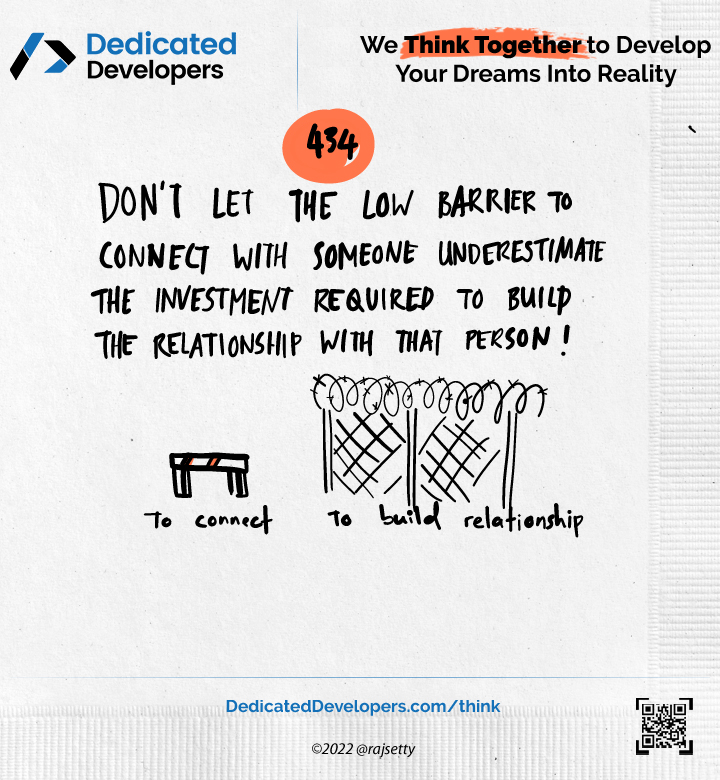 Dedicated
Developers
We Think Together to Develop
Your Dreams Into Reality
434
DON'T LET THE LOW BARRIER TO
CONNECT WITH SOMEONE UNDERESTIMATE
THE INVESTMENT REQUIRED TO BUILD
THE RELATIONSHIP WITH THAT PERSON!
To connect
To build relationship
DedicatedDevelopers.com/think
©2022 @rajsetty